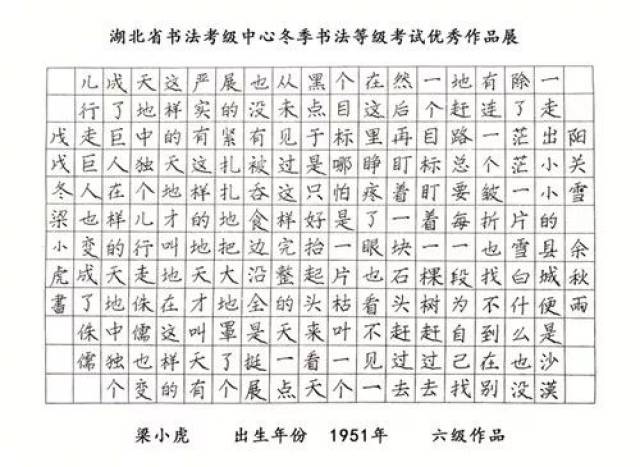 湖北省书法考级中心冬季书法等级考试优秀作品展
阳关雪 余秋雨
一走出小小的县城便是沙漠
除了茫茫一片雪白什么也没
有连一个皱折也找不到在别
地赶路总要每一段为自己找
一个目标盯着一棵树赶过去
然后再盯着一块石头赶过去
在这里睁疼了眼也看不见一
个目标哪怕是一片枯叶一个
黑点于是只好抬起头来看天
从未见过这样完整的天一点
也没有被吞食边沿全是挺展
展的紧扎扎地把大地罩了个
严实有这样的地天才叫天有
这样的天地才叫地在这样的
天地中独个儿行走侏儒也变
成了巨人在样的天地中独个
儿行走巨人也变成了侏儒
戊戌冬梁小虎書
梁小虎 出生年份 1951年 六级作品